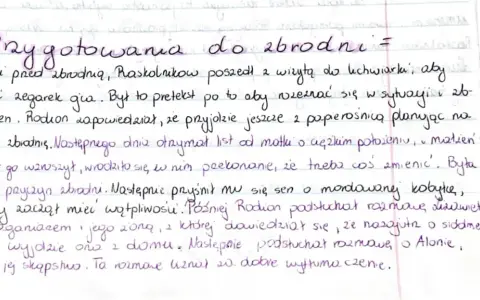 zygotowania do zbrodni =
przed zbrodnią, Raskolnikow poszedł z wizytą do lichwiarki, aby
zegarek ojca. Był to pretekst po to aby rozeznać się w sytuacji i zb-
en. Rodion zapowiedział, że przyjdzie jeszcze z papierośnicą planując na
zbrodnię. Następnego dnia otrzymał list od matki o ciężkim położeniu, i małżeń
go wzruszył, wrodziło się w nim przekonanie, że trzeba coś zmienić. Była
przyczyn zbrodni. Następnie przyśnił mu się sen o mordowanej kobyłce,
y zaczął mieć wątpliwości. Później Rodion podsłuchał rozmowę
i jego żoną, z której dowiedział się, że nazajutrz o siódme
wyjdzie ona z domu. Następnie podsłuchał rozmowę o Alonie,
jej skąpstwo. Tą rozmowę uznał za dobre wytłumaczenie.